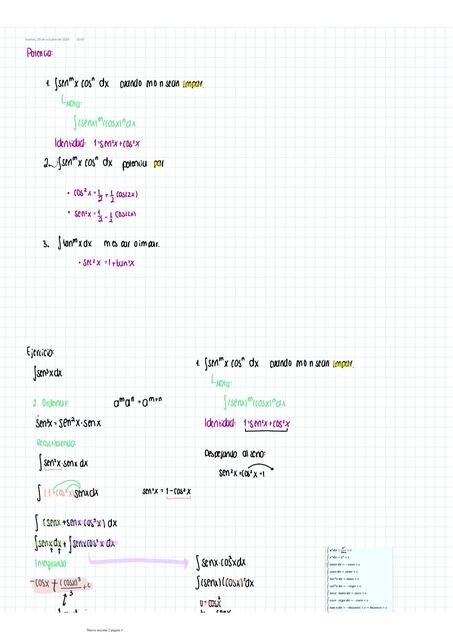 martes, 29 de octubre de 2024 10:07
Potencia:
1. ∫sen^m x cos^n dx cuando m o n sean impar.
Nota:
∫(senx)^m (cosx)^n dx
Identidad: 1=sen²x+cos²x
2. ∫sen^m x cos^n dx potencia par
• cos²x = 1/2 + 1/2 cos(2x)
• sen²x = 1/2 - 1/2 cos(2x)
3. ∫tan^m x dx m es par o impar.
• sec²x = 1+tan²x
Ejercicio:
∫sen³x dx
2. Ordenar: a^m a^n = a^m+n
sen³x = sen²x · senx
Reescribiendo
∫sen²x · senx dx
∫(1-cos²x) senx dx sen²x = 1-cos²x
∫(senx+senx cos²x) dx
∫senx dx + ∫senx cos²x dx
Integrando
-cosx + (cosx)³/3 + c
1. ∫sen^m x cos^n dx cuando m o n sean impar.
Nota:
∫(senx)^m (cosx)^n dx
Identidad: 1=sen²x+cos²x
Despejando al seno:
sen²x+cos²x=1
∫senx·cos²x dx
∫(senx)(cosx)² dx
u=cosx
Nueva sección 2 página 1